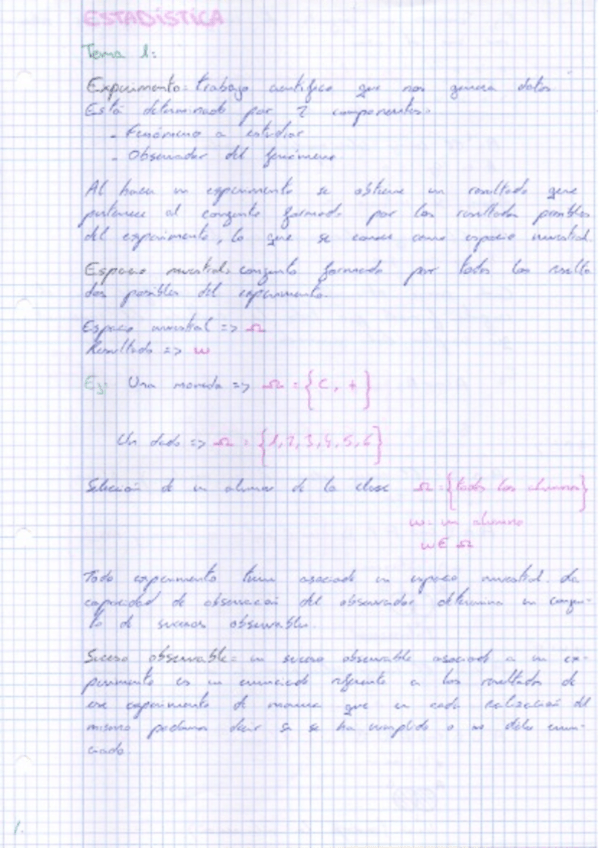 ESTADÍSTICA
Tema 1:
Experimento: trabajo científico que nos genera datos
Está determinado por 2 componentes:
- Fenómeno a estudiar
- Observador del fenómeno
Al hacer un experimento se obtiene un resultado que
pertenece al conjunto formado por los resultados posibles
del experimento, lo que se conoce como espacio muestral
Espacio muestral: conjunto formado por todos los resulta
dos posibles del experimento.
Espacio muestral => Ω
Resultado => w
Ej: Una moneda => Ω = {C, +}
Un dado => Ω = {1,2,3,4,5,6}
Selección de un alumno de la clase Ω = {todos los alumnos}
w = un alumno
w ∈ Ω
Todo experimento tiene asociado un espacio muestral. La
capacidad de observación del observador determina un conjun-
to de sucesos observables.
Suceso observable: un suceso observable asociado a un ex-
perimento es un enunciado referente a los resultados de
ese experimento de manera que en cada realización del
mismo podamos decir si se ha cumplido o no dicho enun-
ciado.
1.